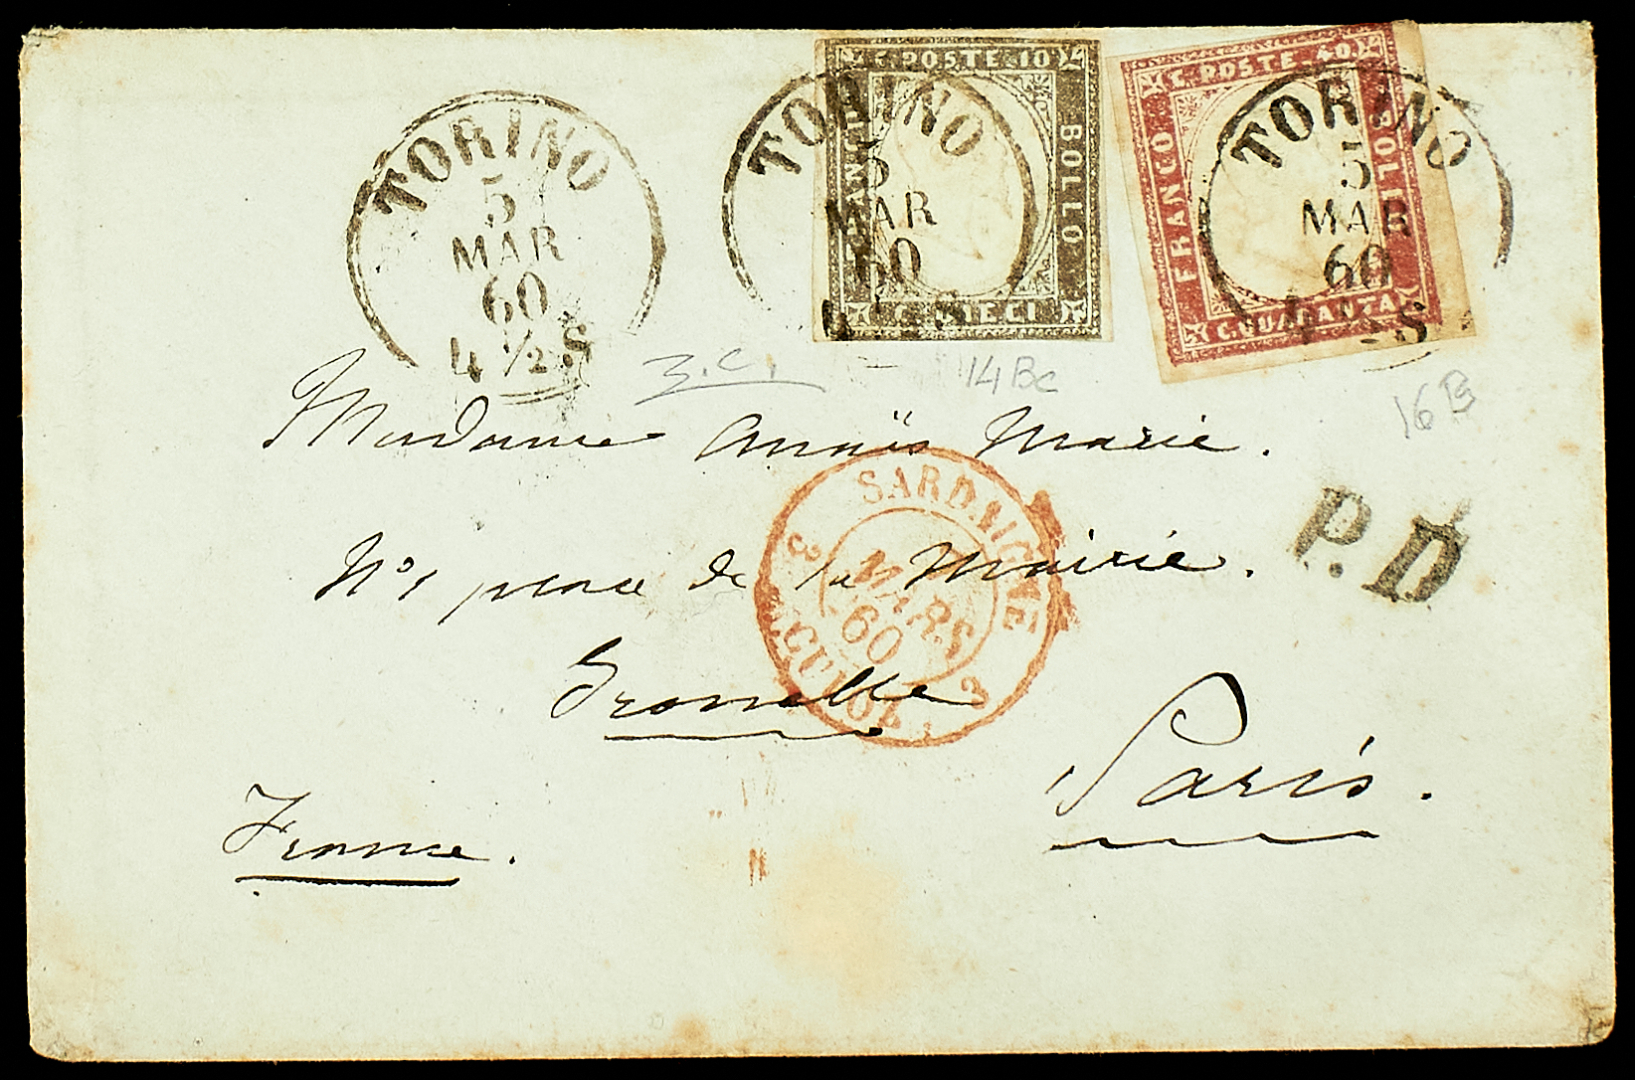 TORINO
5
MAR
60
4 ½ S
C. POSTE 10
BOLLO
C. DIECI
TORINO
5
MAR
60
S
C. POSTE 40
FRANCO
BOLLO
C. QUARANTA
TORINO
5
MAR
60
S
3.C.
14Bc
16B
Madame Anaïs Marie.
P.D
SARDAIGNE
3 MARS 60 3
CULOZ
N°1 place de la Mairie.
Grenelle
Paris.
France.